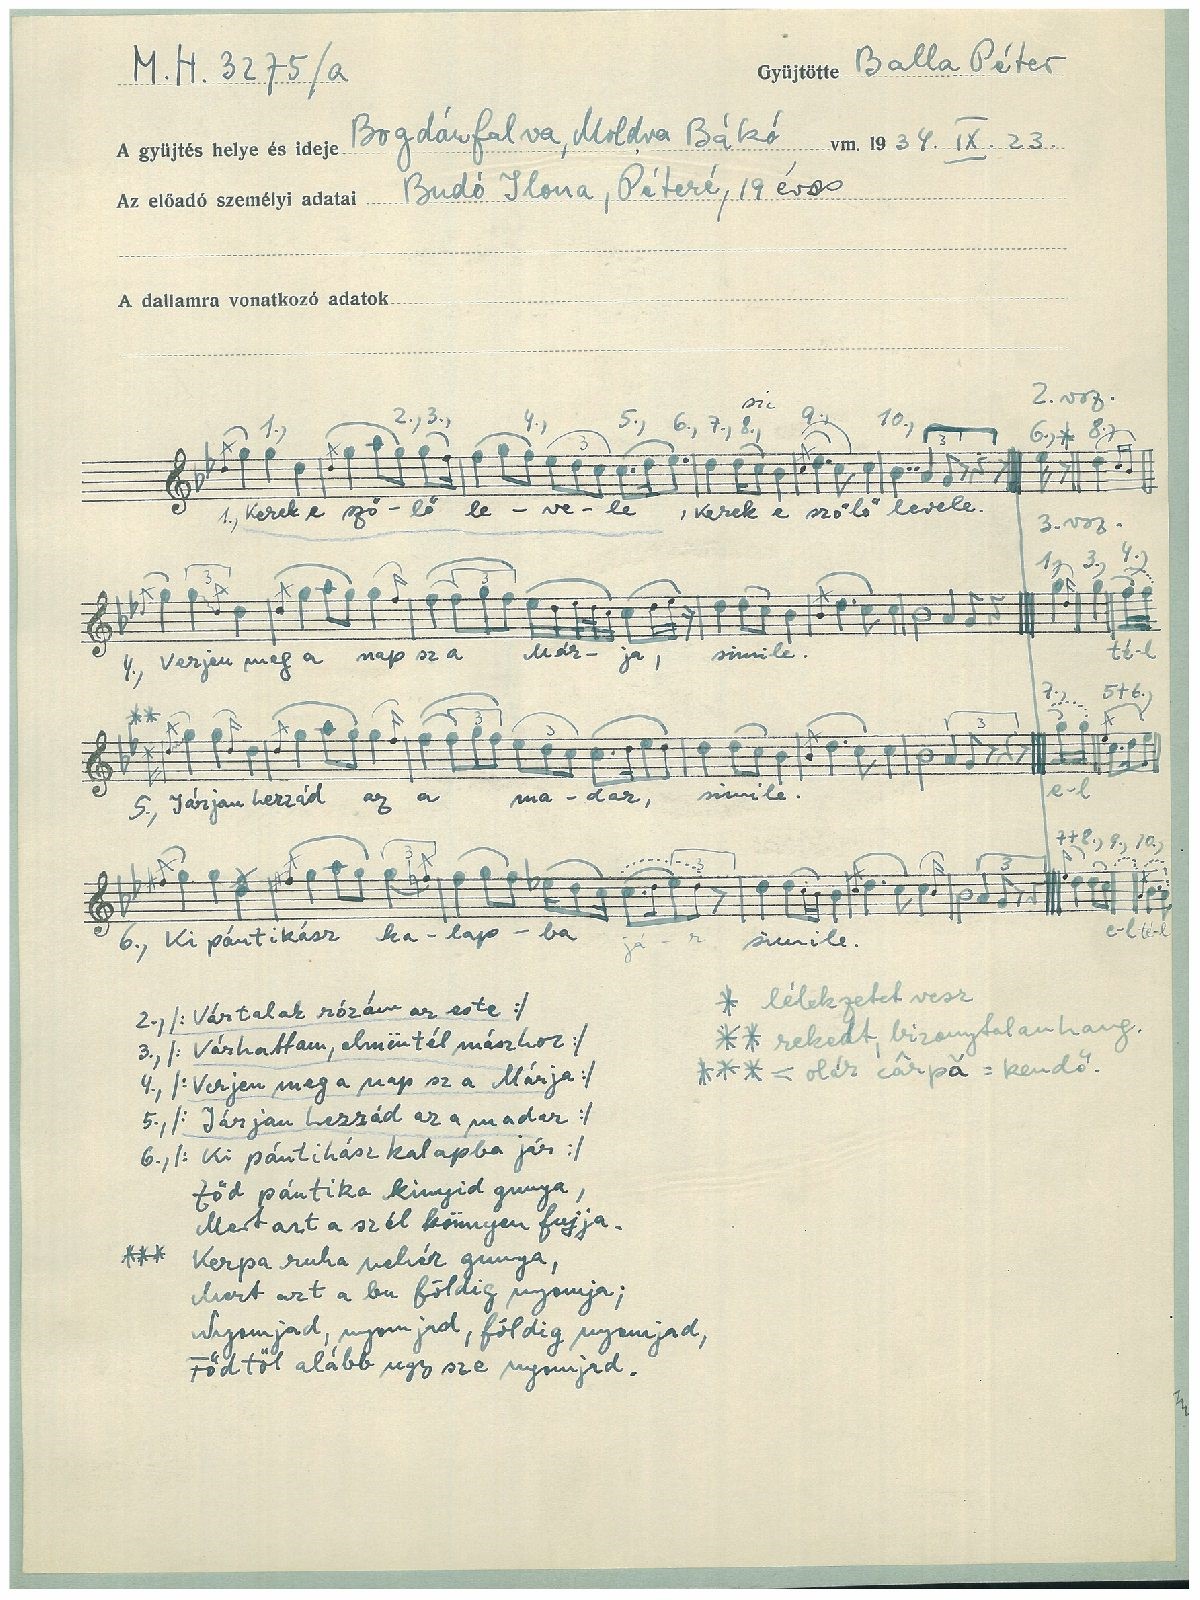 M.H. 3275/a
Gyüjtötte Balla Péter
A gyüjtés helye és ideje Bogdánfalva, Moldva Bákó vm. 1934. IX. 23.
Az előadó személyi adatai Budó Ilona, Péteré, 19 éves
A dallamra vonatkozó adatok
2. vsz.
sic
1., 2., 3., 4., 5., 6., 7., 8., 9., 10., 6., * 8.,
1., Kerek e sző-lő le-ve-le, kerek e szőlő levele.
3. vsz.
1., 3., 4.,
3
4., Verjen meg a nap sz a Már-ja, simile. té-l
**
7., 5+6.,
3 3 3
5., Járjan hezzád az a ma-dar, simile. e-l
7+8., 9., 10.,
3 3 3
6., Ki pántikász ka-lap-ba já-r simile. e-l té-l
2., /: Vártalak rózám az este :/
3., /: Várhattam, elmüntél mászhoz :/
4., /: Verjen meg a nap sz a Márja :/
5., /: Járjan hezzád az a madar :/
6., /: Ki pántikász kalapba jár :/
Ződ pántika kinyid gunya,
Mert azt a szél könnyen fujja.
*** Kerpa ruha nehéz gunya,
Mert azt a bu földig nyomja;
Nyomjad, nyomjad, földig nyomjad,
Födtől alább ugy sze nyomjad.
* lélekzetet vesz
** rekedt, bizonytalan hang.
*** = oláh cârpă = kendő.